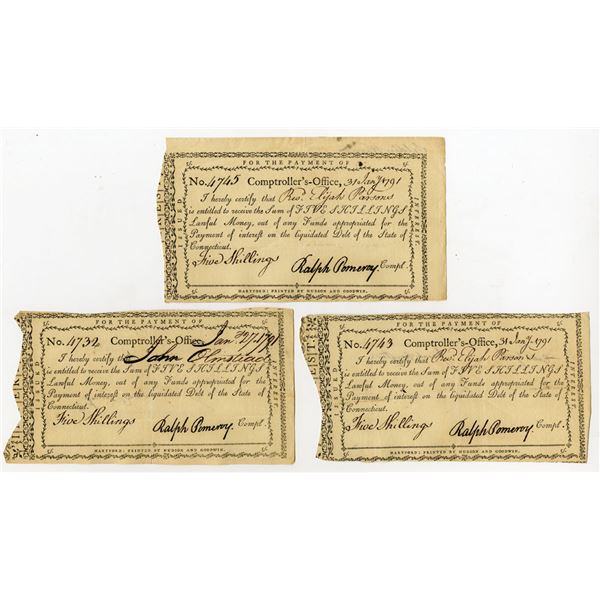 FOR THE PAYMENT OF
ISSUED
INTEREST.
No. 4745 Comptroller's-Office, 31 Jany. 1791
I hereby certify that Rev. Elijah Parsons
is entitled to receive the Sum of FIVE SHILLINGS
Lawful Money, out of any Funds appropriated for the
Payment of interest on the liquidated Debt of the State of
Connecticut.
Five Shillings Ralph Pomeroy, Compl.
HARTFORD: PRINTED BY HUDSON AND GOODWIN.
FOR THE PAYMENT OF
ISSUED
INTEREST.
No. 4732 Comptroller's-Office, Jany 27th 1791
I hereby certify that John Olmstead
is entitled to receive the Sum of FIVE SHILLINGS
Lawful Money, out of any Funds appropriated for the
Payment of interest on the liquidated Debt of the State of
Connecticut.
Five Shillings Ralph Pomeroy, Compl.
HARTFORD: PRINTED BY HUDSON AND GOODWIN.
FOR THE PAYMENT OF
ISSUED
INTEREST.
No. 4743 Comptroller's-Office, 31 Jany. 1791
I hereby certify that Rev. Elijah Parsons
is entitled to receive the Sum of FIVE SHILLINGS
Lawful Money, out of any Funds appropriated for the
Payment of interest on the liquidated Debt of the State of
Connecticut.
Five Shillings Ralph Pomeroy, Compl.
HARTFORD: PRINTED BY HUDSON AND GOODWIN.